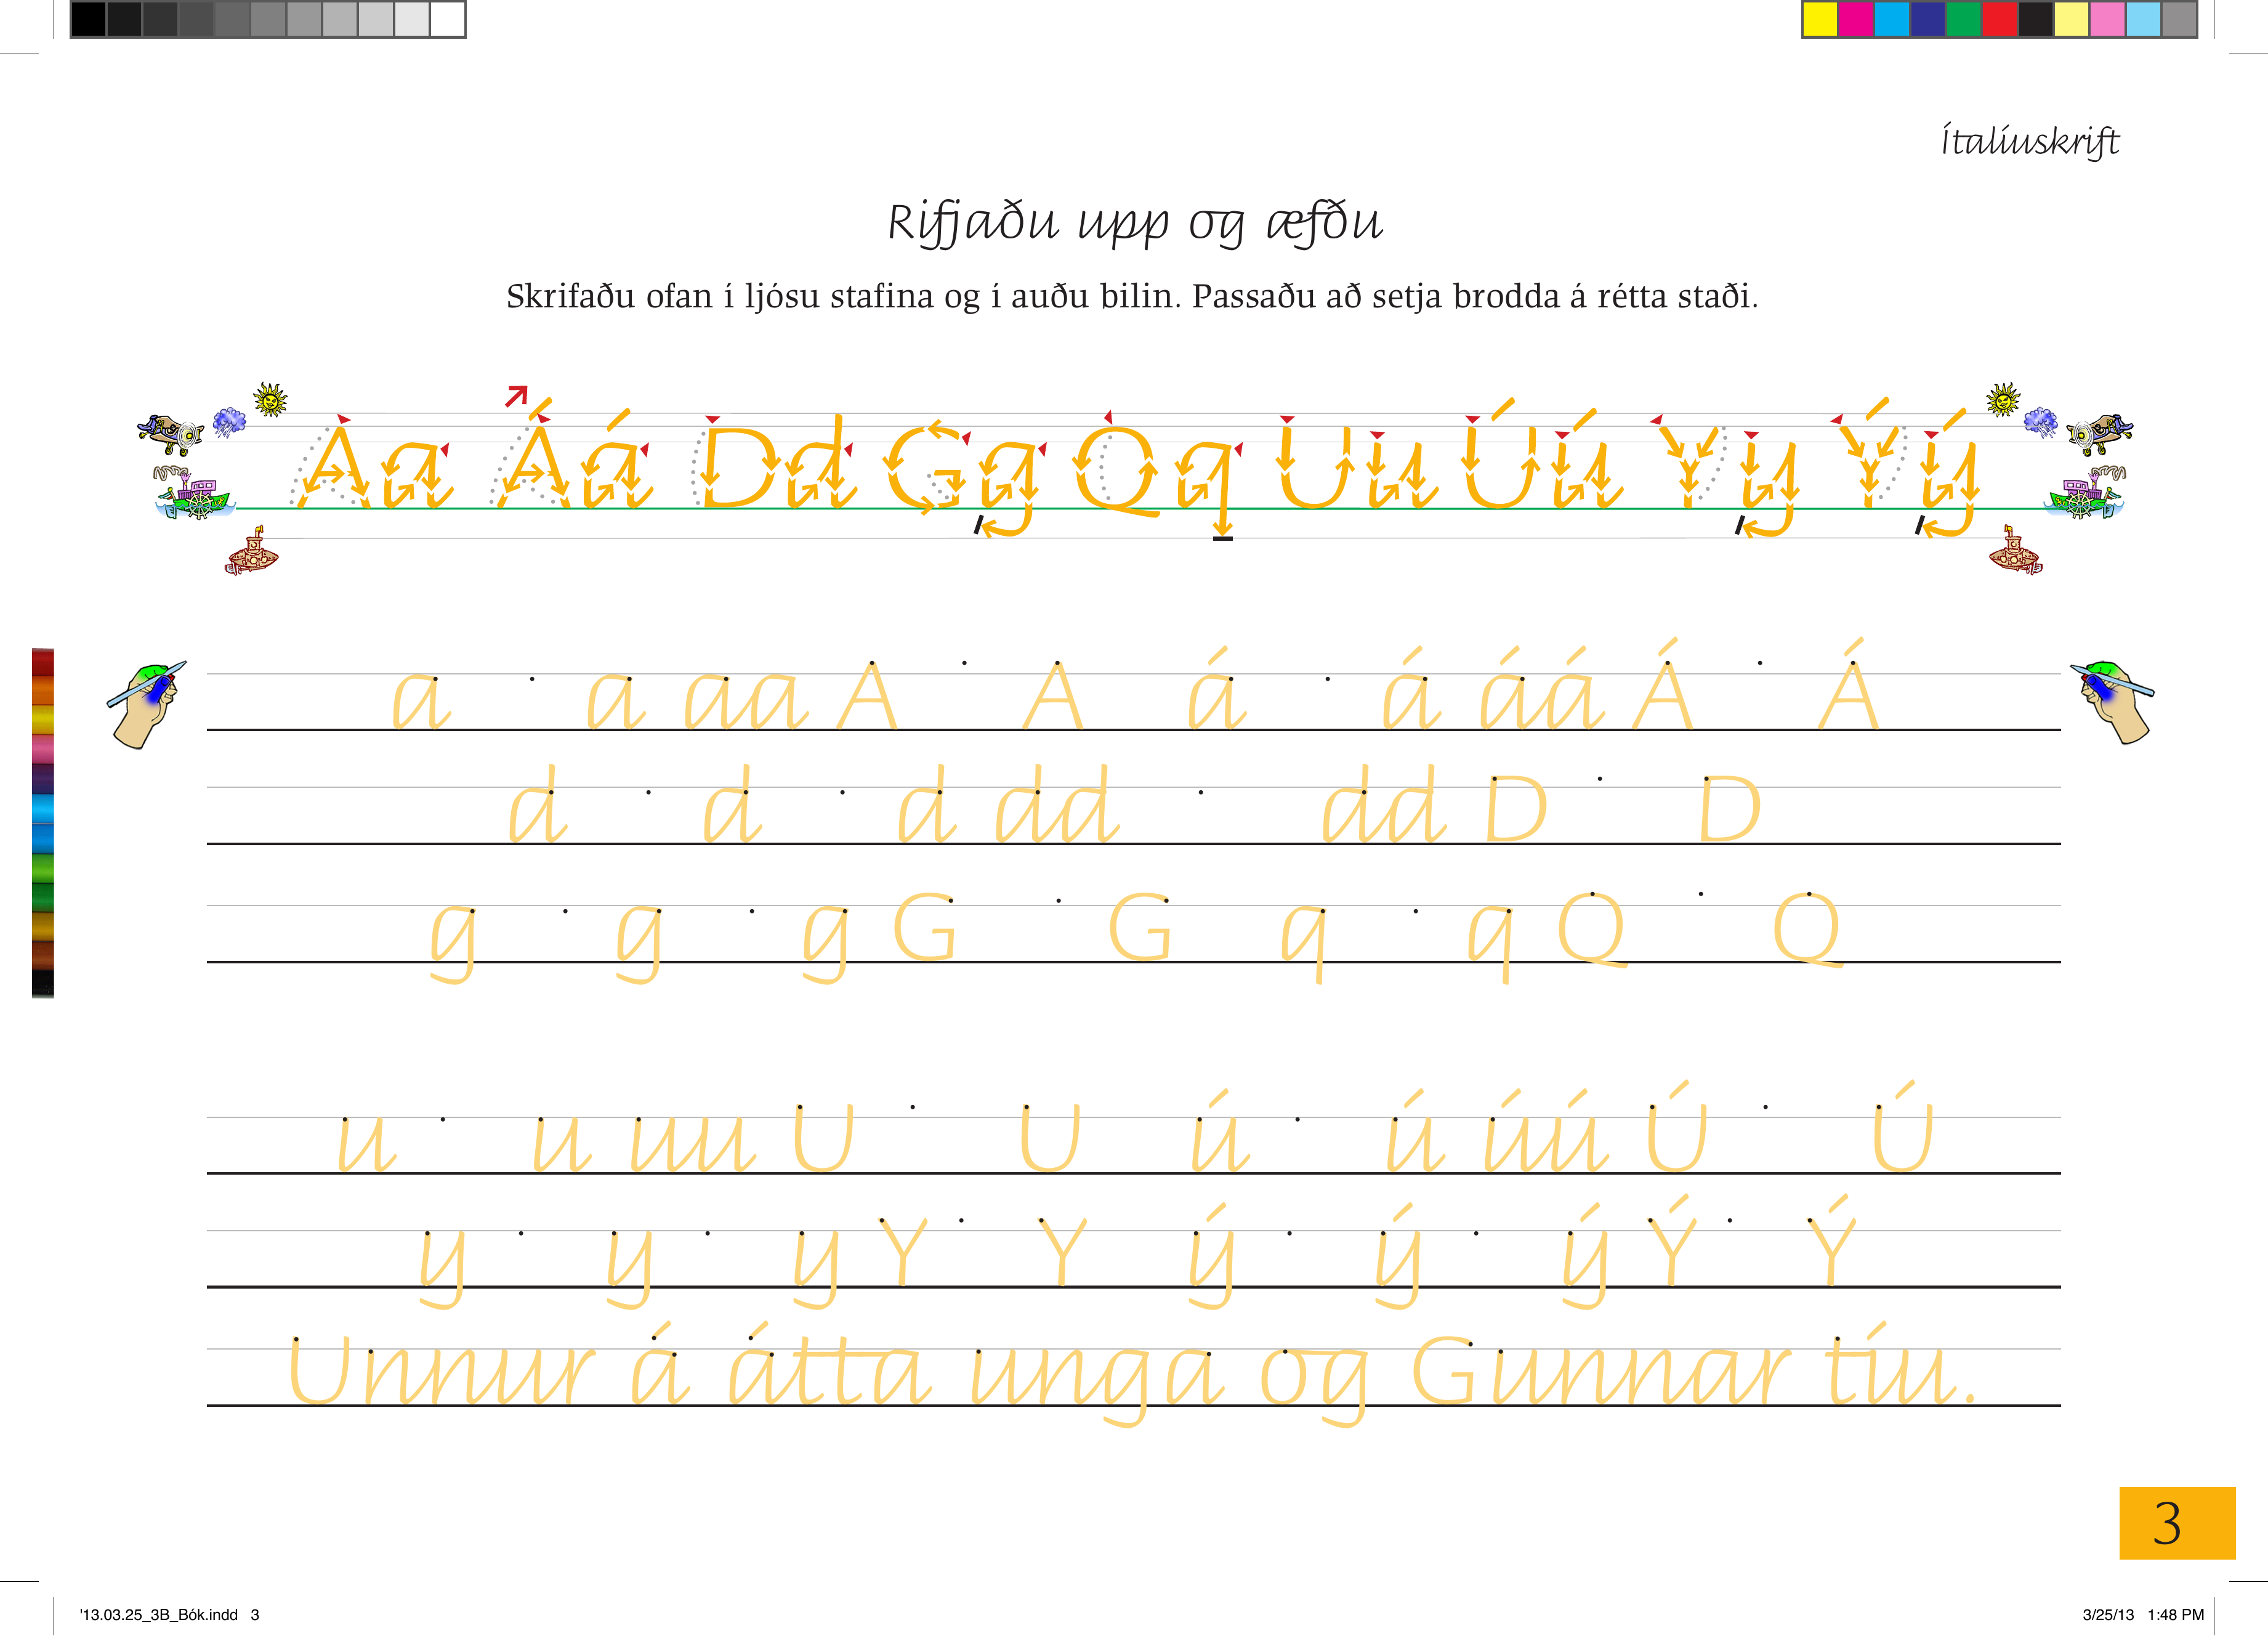 Ítalíuskrift
Rifjaðu upp og æfðu
Skrifaðu ofan í ljósu stafina og í auðu bilin. Passaðu að setja brodda á rétta staði.
A a Á á D d G g Q q U u Ú ú Y y Ý ý
a a aa A A á á áá Á Á
d d d dd dd D D
g g g G G q q Q Q
u u uu U U ú ú úú Ú Ú
y y y Y Y ý ý ý Ý Ý
Unnur á átta unga og Gunnar tíu.
3
'13.03.25_3B_Bók.indd 3 3/25/13 1:48 PM